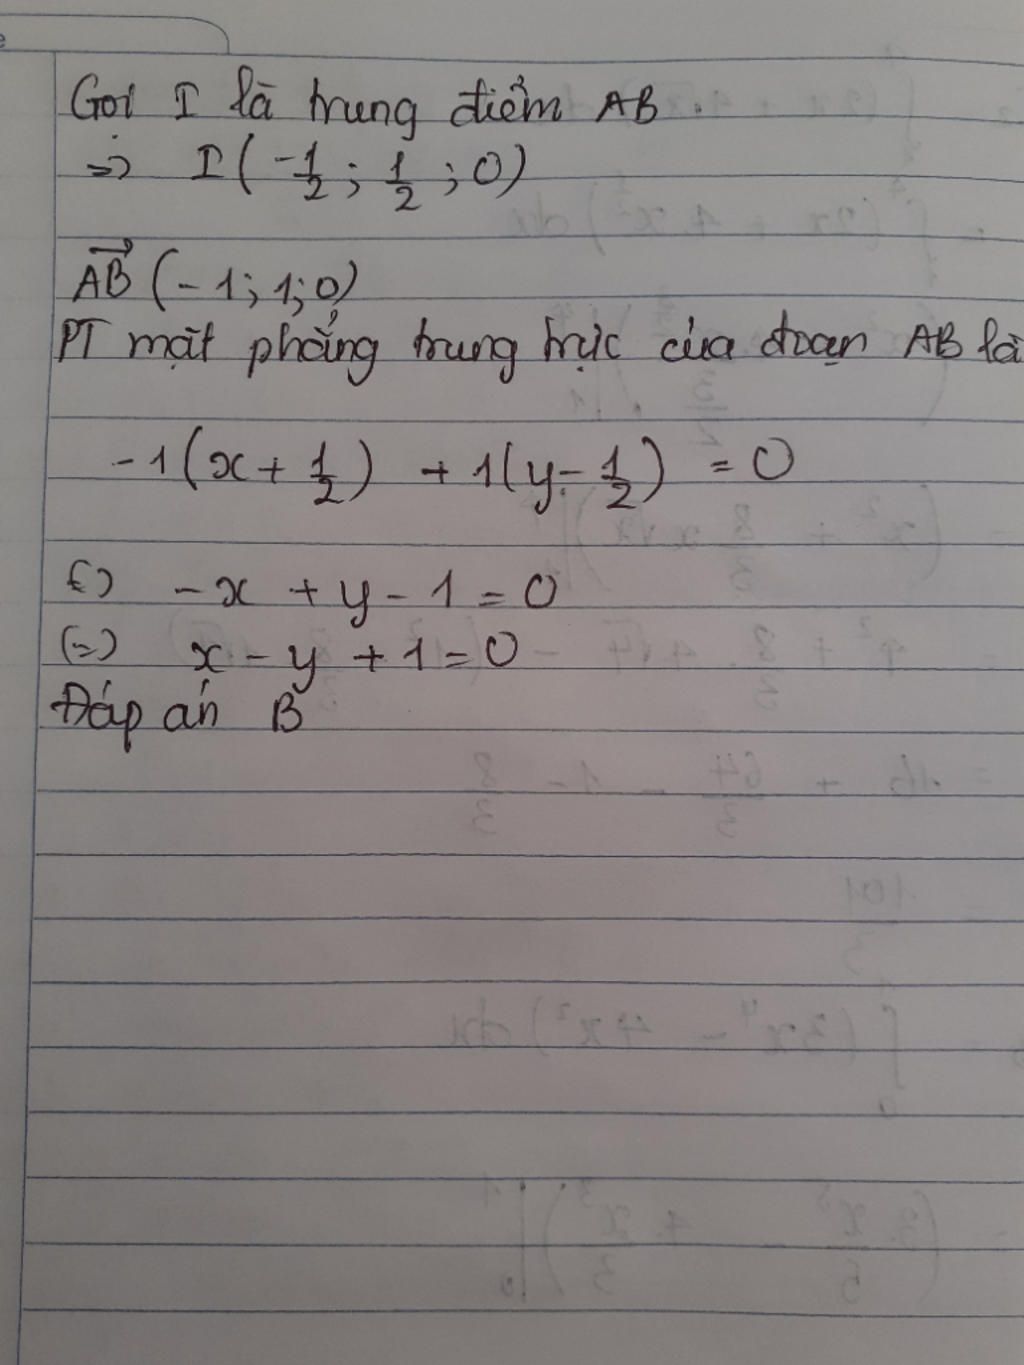 Gọi I là trung điểm AB.
=> I(-1/2; 1/2; 0)
AB→ (-1; 1; 0)
PT mặt phẳng trung trực của đoạn AB là
-1(x + 1/2) + 1(y - 1/2) = 0
(=) -x + y - 1 = 0
(=) x - y + 1 = 0
Đáp án B